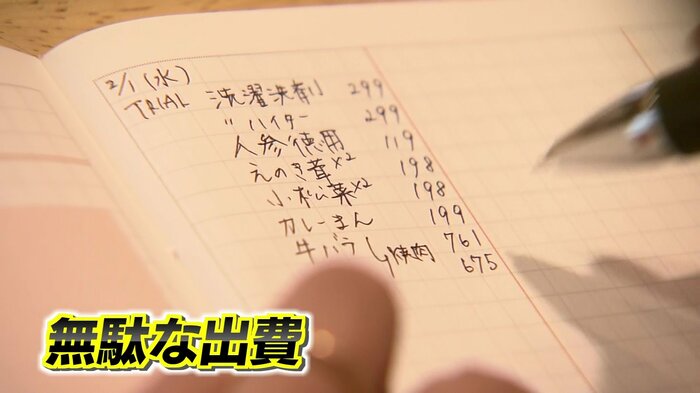 2/1(水)
TRIAL 洗濯洗剤 299
〃 ハイター 299
人参徳用 119
えのき茸×2 198
小松菜×2 198
カレーまん 199
牛バラ 761
↳焼肉 675
無駄な出費